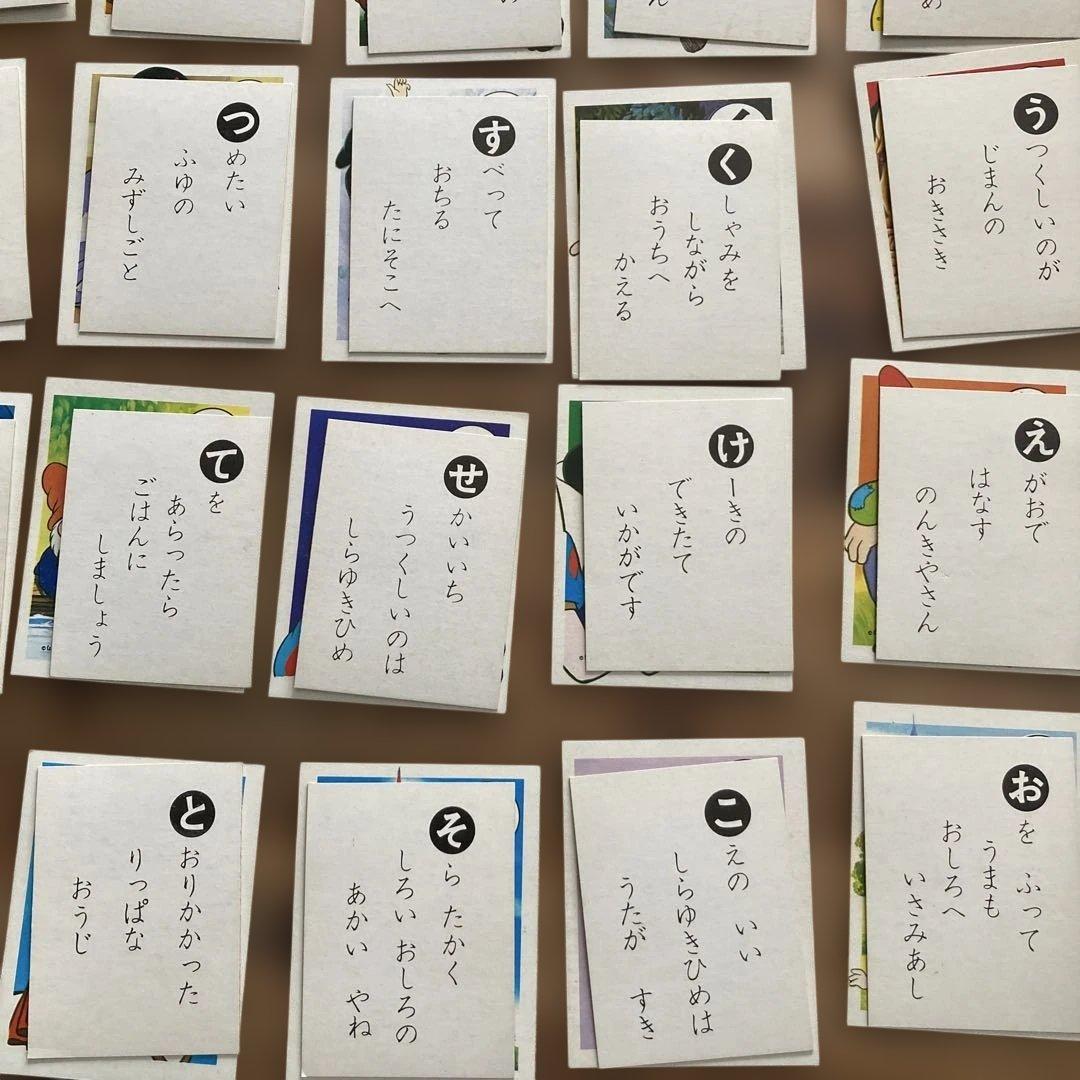 つめたい
ふゆの
みずしごと
すべって
おちる
たにそこへ
くしゃみを
しながら
おうちへ
かえる
うつくしいのが
じまんの
おきさき
てを
あらったら
ごはんに
しましょう
せかいいち
うつくしいのは
しらゆきひめ
けーきの
できたて
いかがです
えがおで
はなす
のんきやさん
とおりかかった
りっぱな
おうじ
そら たかく
しろい おしろの
あかい やね
こえの いい
しらゆきひめは
うたが すき
おを ふって
うまも
おしろへ
いさみあし